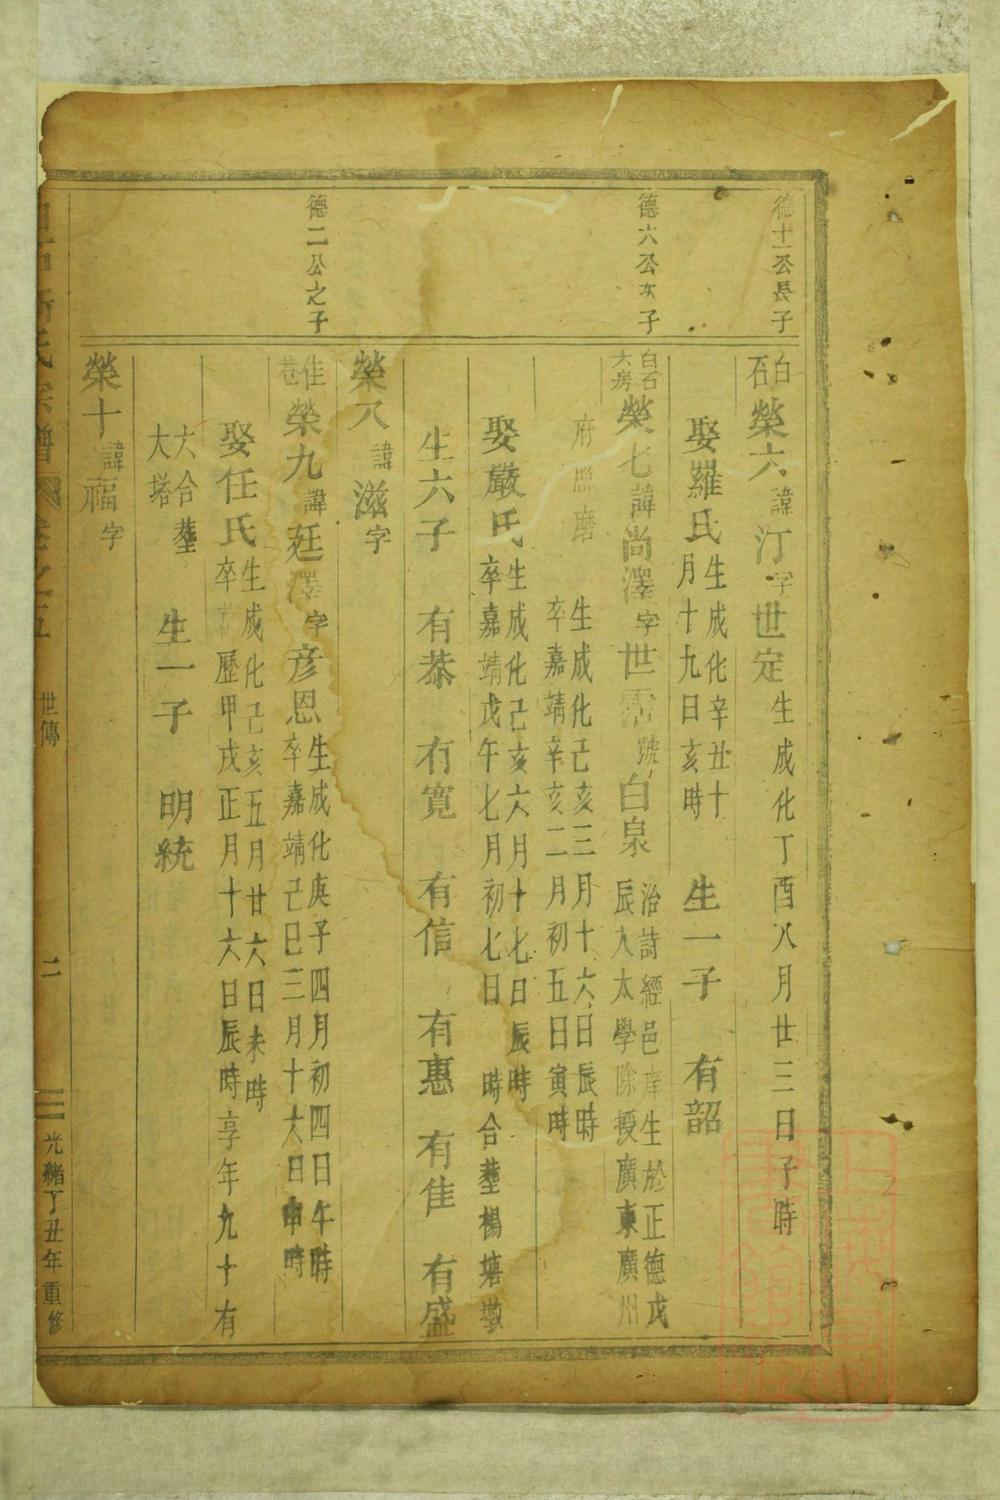 德十一公長子
白石
榮六諱汀字世定 生成化丁酉八月廿三日子時
娶羅氏 生成化辛丑十月十九日亥時 生一子 有韶
德六公次子
白石大房
榮七諱尚澤字世霑號白泉 治詩經邑庠生於正德戊辰入太學除授廣東廣州
府照磨 生成化己亥三月十六日辰時
卒嘉靖辛亥二月初五日寅時
娶嚴氏 生成化己亥六月十七日辰時
卒嘉靖戊午七月初七日 時合塟楊塘墩
生六子 有恭 有寬 有信 有惠 有佳 有盛
榮八諱滋字
德二公之子
佳巷
榮九諱廷澤字彦恩 生成化庚子四月初四日午時
卒嘉靖己巳三月十六日申時
娶任氏 生成化己亥五月廿六日未時
卒萬歷甲戌正月十六日辰時享年九十有
六合塟大塔 生一子 明統
榮十諱福字
氏宗譜 卷之五 世傳 二 光緒丁丑年重修